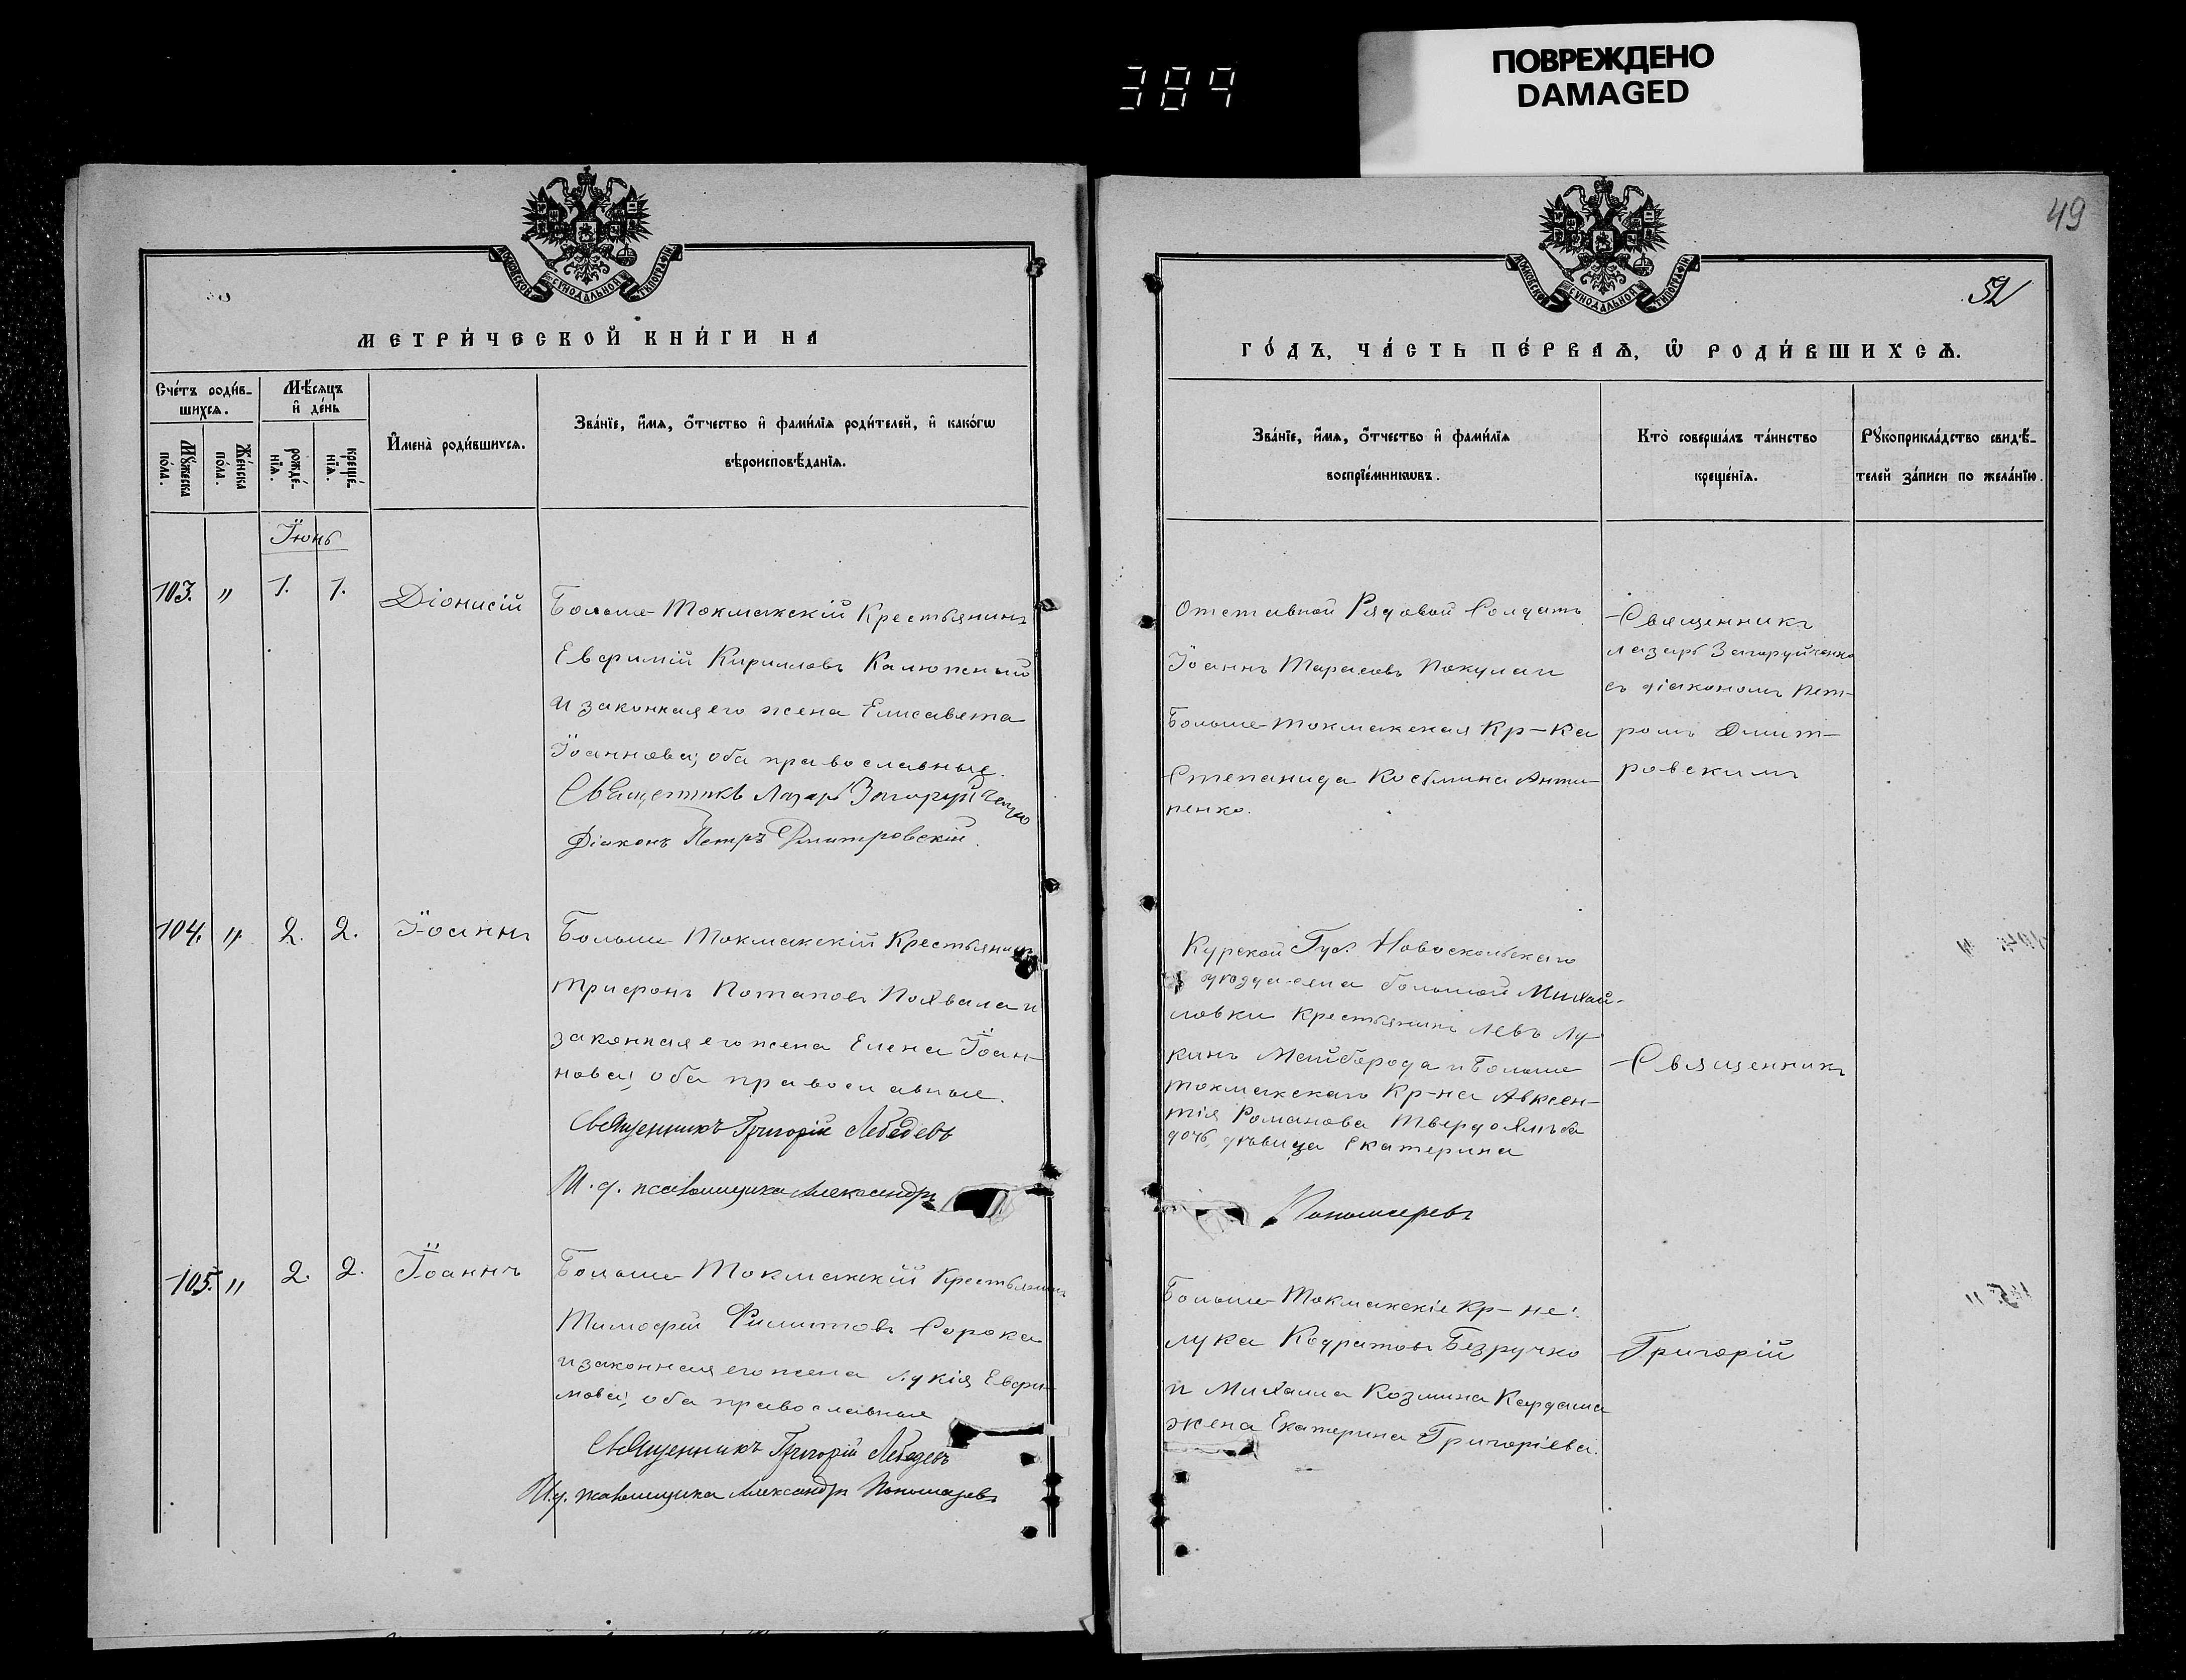 389
ПОВРЕЖДЕНО
DAMAGED
МОСКОВСКОЙ СѴНОДАЛЬНОЙ ТИПОГРАФІИ
МЕТРИ́ЧЕСКОЙ КНИ́ГИ НА
Сче́тъ роди́в-
шихсѧ.
Мѣ́сѧцъ
и҆ де́нь
Мꙋ́жеска
по́ла.
Же́нска
по́ла.
рожде́-
нїѧ.
креще́-
нїѧ.
И҆мена̀ роди́вшихсѧ.
Зва́нїе, и҆́мѧ, ѻ҆́тчество и҆ фами́лїѧ роди́телей, и҆ како́гѡ
вѣроисповѣ́данїѧ.
Іюнь
103. " 1. 1. Діонисій
Больше-Токмакскій Крестьянинъ
Евфимій Кирилловъ Калюжный
и законная его жена Елисавета
Іоаннова; оба православные.
Священникъ Лазарь Загоруйченко
Діаконъ Петръ Дмитровскій.
104. " 2. 2. Іоаннъ
Больше Токмакскій Крестьянинъ
Трифонъ Потаповъ Похвала и
законная его жена Елена Іоан-
нова; оба православные.
Священникъ Григорій Лебедевъ
И. д. псаломщика Александръ
105. " 2. 2. Іоаннъ
Больше-Токмакскій Крестьянинъ
Тимофей Филиповъ Сорока
и законная его жена Лукія Евфи-
мова; оба православные
Священникъ Григорій Лебедевъ
И. д. псаломщика Александръ Пономаревъ
49
52
МОСКОВСКОЙ СѴНОДАЛЬНОЙ ТИПОГРАФІИ
ГО́ДЪ, ЧА́СТЬ ПЕ́РВАѦ, Ѡ҆ РОДИ́ВШИХСѦ.
Зва́нїе, и҆́мѧ, ѻ҆́тчество и҆ фами́лїѧ
воспрїе́мникѡвъ.
Кто̀ соверша́лъ та́инство
креще́нїѧ.
Рꙋкоприкла́дство свидѣ́-
телей за́писи по жела́нїю.
Отставной Рядовой Солдатъ
Іоаннъ Тарасовъ Покулаи
Больше-Токмакская Кр-ка
Степанида Косьмина Анти-
пенко.
Священникъ
Лазарь Загоруйченко
съ діакономъ Пет-
ромъ Дмит-
ровскимъ
Курской Губ. Новоскольскаго
уезда села большой Михай-
ловки Крестьянинъ Левъ Лу-
кинъ Майборода и Больше
Токмакскаго Кр-на Авксен-
тія Романова Твердохлѣба
дочь, дѣвица Екатерина
Пономаревъ
Священникъ
Больше-Токмакскіе Кр-не:
Лука Кодратовъ Безручко
и Михаила Козмина Кардаша
жена Екатерина Григоріева.
Григорій